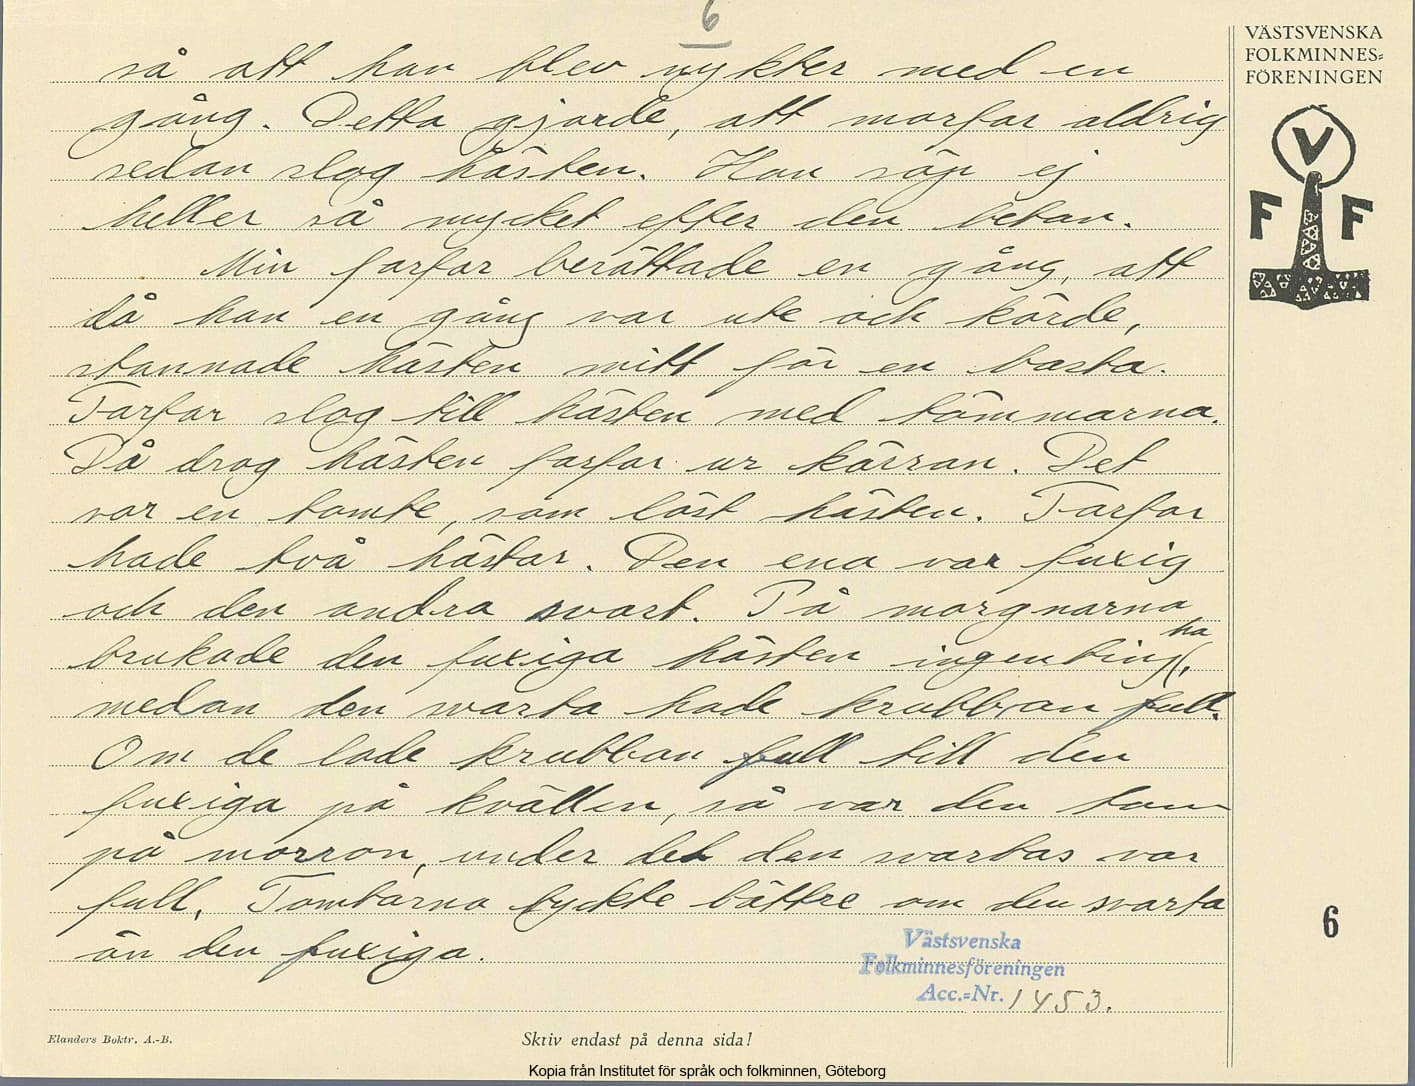 6
så att han blev nykter med en
gång. Detta gjorde, att morfar aldrig
sedan slog hästen. Han söp ej
heller så mycket efter den betan.
Min farfar berättade en gång, att
då han en gång var ute och körde,
stannade hästen mitt för en basta.
Farfar slog till hästen med tömmarna.
Då drog hästen farfar ur kärran. Det
var en tomte, som löst hästen. Farfar
hade två hästar. Den ena var fuxig
och den andra svart. På morgnarna
ha
brukade den fuxiga hästen ingenting,
medan den svarta hade krubban full.
Om de lade krubban full till den
fuxiga på kvällen, så var den tom
på morron, under det den svartas var
full. Tomtarna tyckte bättre om den svarta
än den fuxiga.
VÄSTSVENSKA
FOLKMINNES=
FÖRENINGEN
V
F F
6
Västsvenska
Folkminnesföreningen
Acc.=Nr. 1453.
Elanders Boktr. A.-B.
Skriv endast på denna sida!
Kopia från Institutet för språk och folkminnen, Göteborg